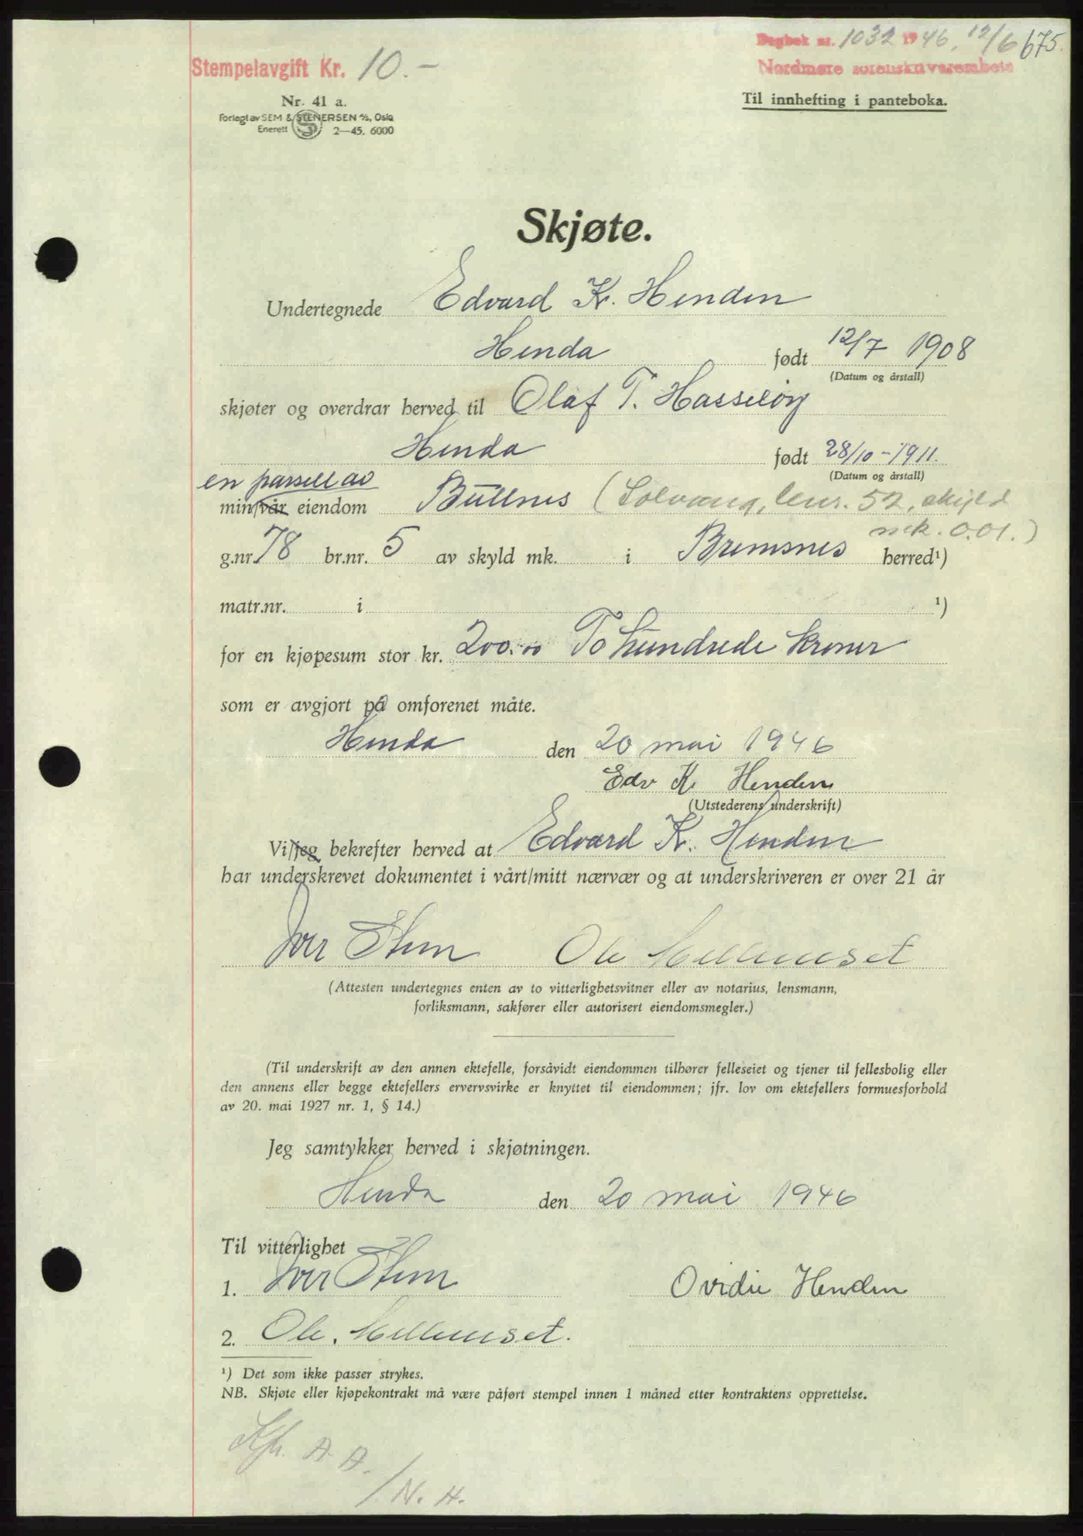 Dagbok nr. 1032 1946, 12/6 675.
Stempelavgift Kr. 10.-
Nordmøre sorenskriverembete
Nr. 41 a.
Til innhefting i panteboka.
Forlegt av SEM & STENERSEN A/S, Oslo
Enerett 2—45. 6000
Skjøte.
Undertegnede Edvard K. Henden
Henda født 12/7 1908
(Datum og årstall)
skjøter og overdrar herved til Olaf T. Hasseløy
Henda født 28/10-1911.
(Datum og årstall)
en parsell av
min/vår eiendom Bullnes (Solvang, bnr. 52, skyld
mk. 0.01.)
g.nr. 78 br.nr. 5 av skyld mk. i Bremsnes herred¹)
matr.nr. i ¹)
for en kjøpesum stor kr. 200.00 To hundrede kroner
som er avgjort på omforenet måte.
Henda den 20 mai 1946
Edv K. Henden
(Utstederens underskrift)
Vi/jeg bekrefter herved at Edvard K. Henden
har underskrevet dokumentet i vårt/mitt nærvær og at underskriveren er over 21 år
Iver Stem Ole Mellemset
(Attesten undertegnes enten av to vitterlighetsvitner eller av notarius, lensmann,
forliksmann, sakfører eller autorisert eiendomsmegler.)
(Til underskrift av den annen ektefelle, forsåvidt eiendommen tilhører felleseiet og tjener til fellesbolig eller
den annens eller begge ektefellers ervervsvirke er knyttet til eiendommen; jfr. lov om ektefellers formuesforhold
av 20. mai 1927 nr. 1, § 14.)
Jeg samtykker herved i skjøtningen.
Henda den 20 mai 1946
Til vitterlighet
1. Iver Stem Ovidie Henden
2. Ole. Mellemset.
¹) Det som ikke passer strykes.
NB. Skjøte eller kjøpekontrakt må være påført stempel innen 1 måned etter kontraktens opprettelse.
A. A.
/N. H.